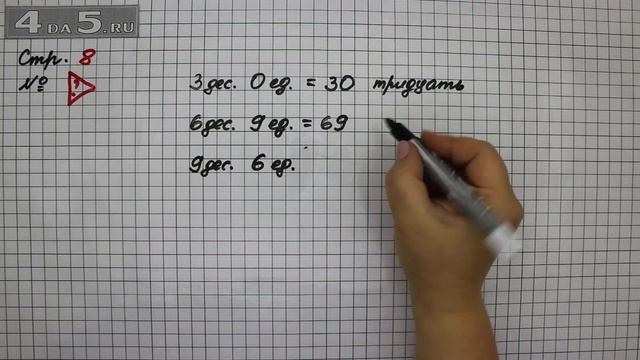 4DA5.RU
Стр. 8
№ !
3 дес. 0 ед. = 30 тридцать
6 дес. 9 ед. = 69
9 дес. 6 ед.